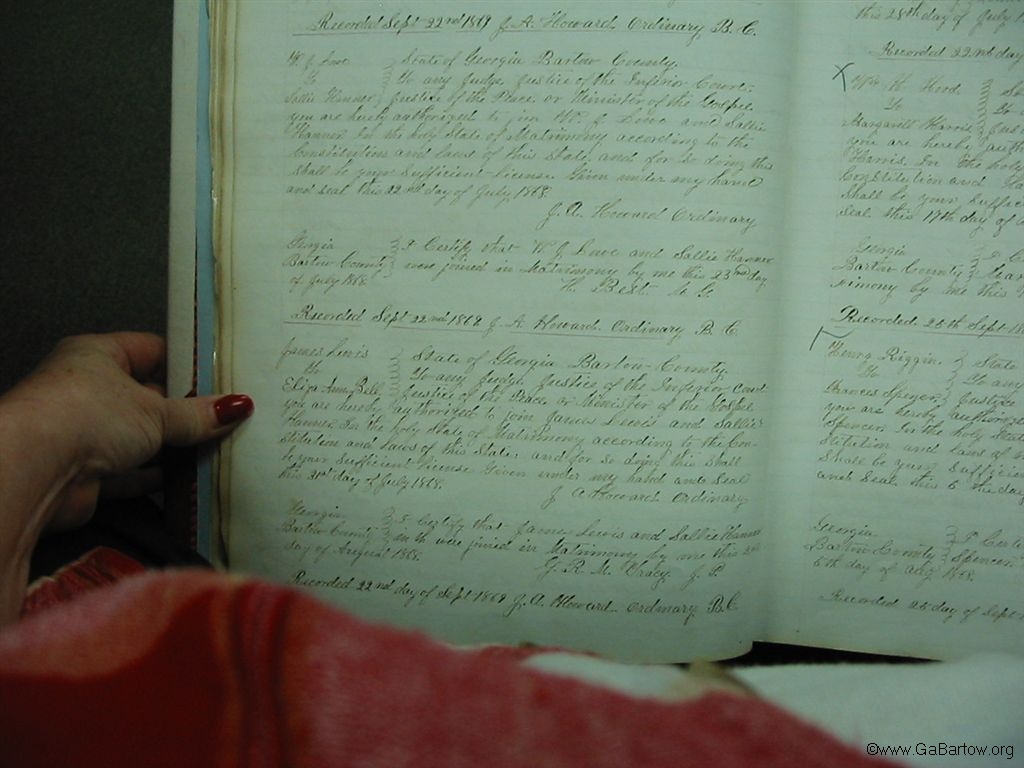 Recorded Sept 22nd 1869 J. A. Howard Ordinary B. C.
W J Lowe State of Georgia Bartow County.
To To any Judge, Justice of the Inferior Court,
Sallie Hanner Justice of the Peace or Minister of the Gospel
you are hereby authorized to join W. J Lowe and Sallie
Hanner In the holy State of Matrimony according to the
Constitution and laws of this State, and for so doing this
shall be your sufficient License Given under my hand
and seal this 22nd day of July 1868.
J. A. Howard Ordinary
Georgia I Certify that W. J. Lowe and Sallie Hanner
Bartow County were joined in Matrimony by me this 23rd day
of July 1868. H. Best M. G.
Recorded Sept 22nd 1869 J. A. Howard Ordinary B. C.
James Lewis State of Georgia Bartow County
To To any Judge, Justice of the Inferior Court
Eliza Ann Bell Justice of the Peace or Minister of the Gospel
you are hereby authorized to join James Lewis and Sallie
Hanner In the holy State of Matrimony according to the Con-
stitution and laws of this State and for so doing this shall
be your Sufficient License Given under my hand and Seal
this 31st day of July 1868.
J A Howard Ordinary
Georgia I Certify that James Lewis and Sallie Hanner
Bartow County were joined in Matrimony by me this
day of August 1868. G. R. M. J. P.
Recorded 22nd day of Sept 1869 J. A. Howard Ordinary B. C.
this 28th day of July
Recorded 22nd day
X Wm H. Hood
To To
Margarett Harris Jus
you are hereby auth
Harris In the holy
Constitution and la
shall be your suffic
seal this 17th day of
Georgia I C
Bartow County
rimony by me this
Recorded 25th Sept 18
Henry Riggin State
To To any
Frances Spencer Justice
you are hereby authorize
Spencer In the holy Stat
stitution and laws of
Shall be your Sufficien
and Seal this 6th day
Georgia I Cert
Bartow County Spencer
6th day of Aug 1868.
Recorded 25 day of Sept
©www.GaBartow.org